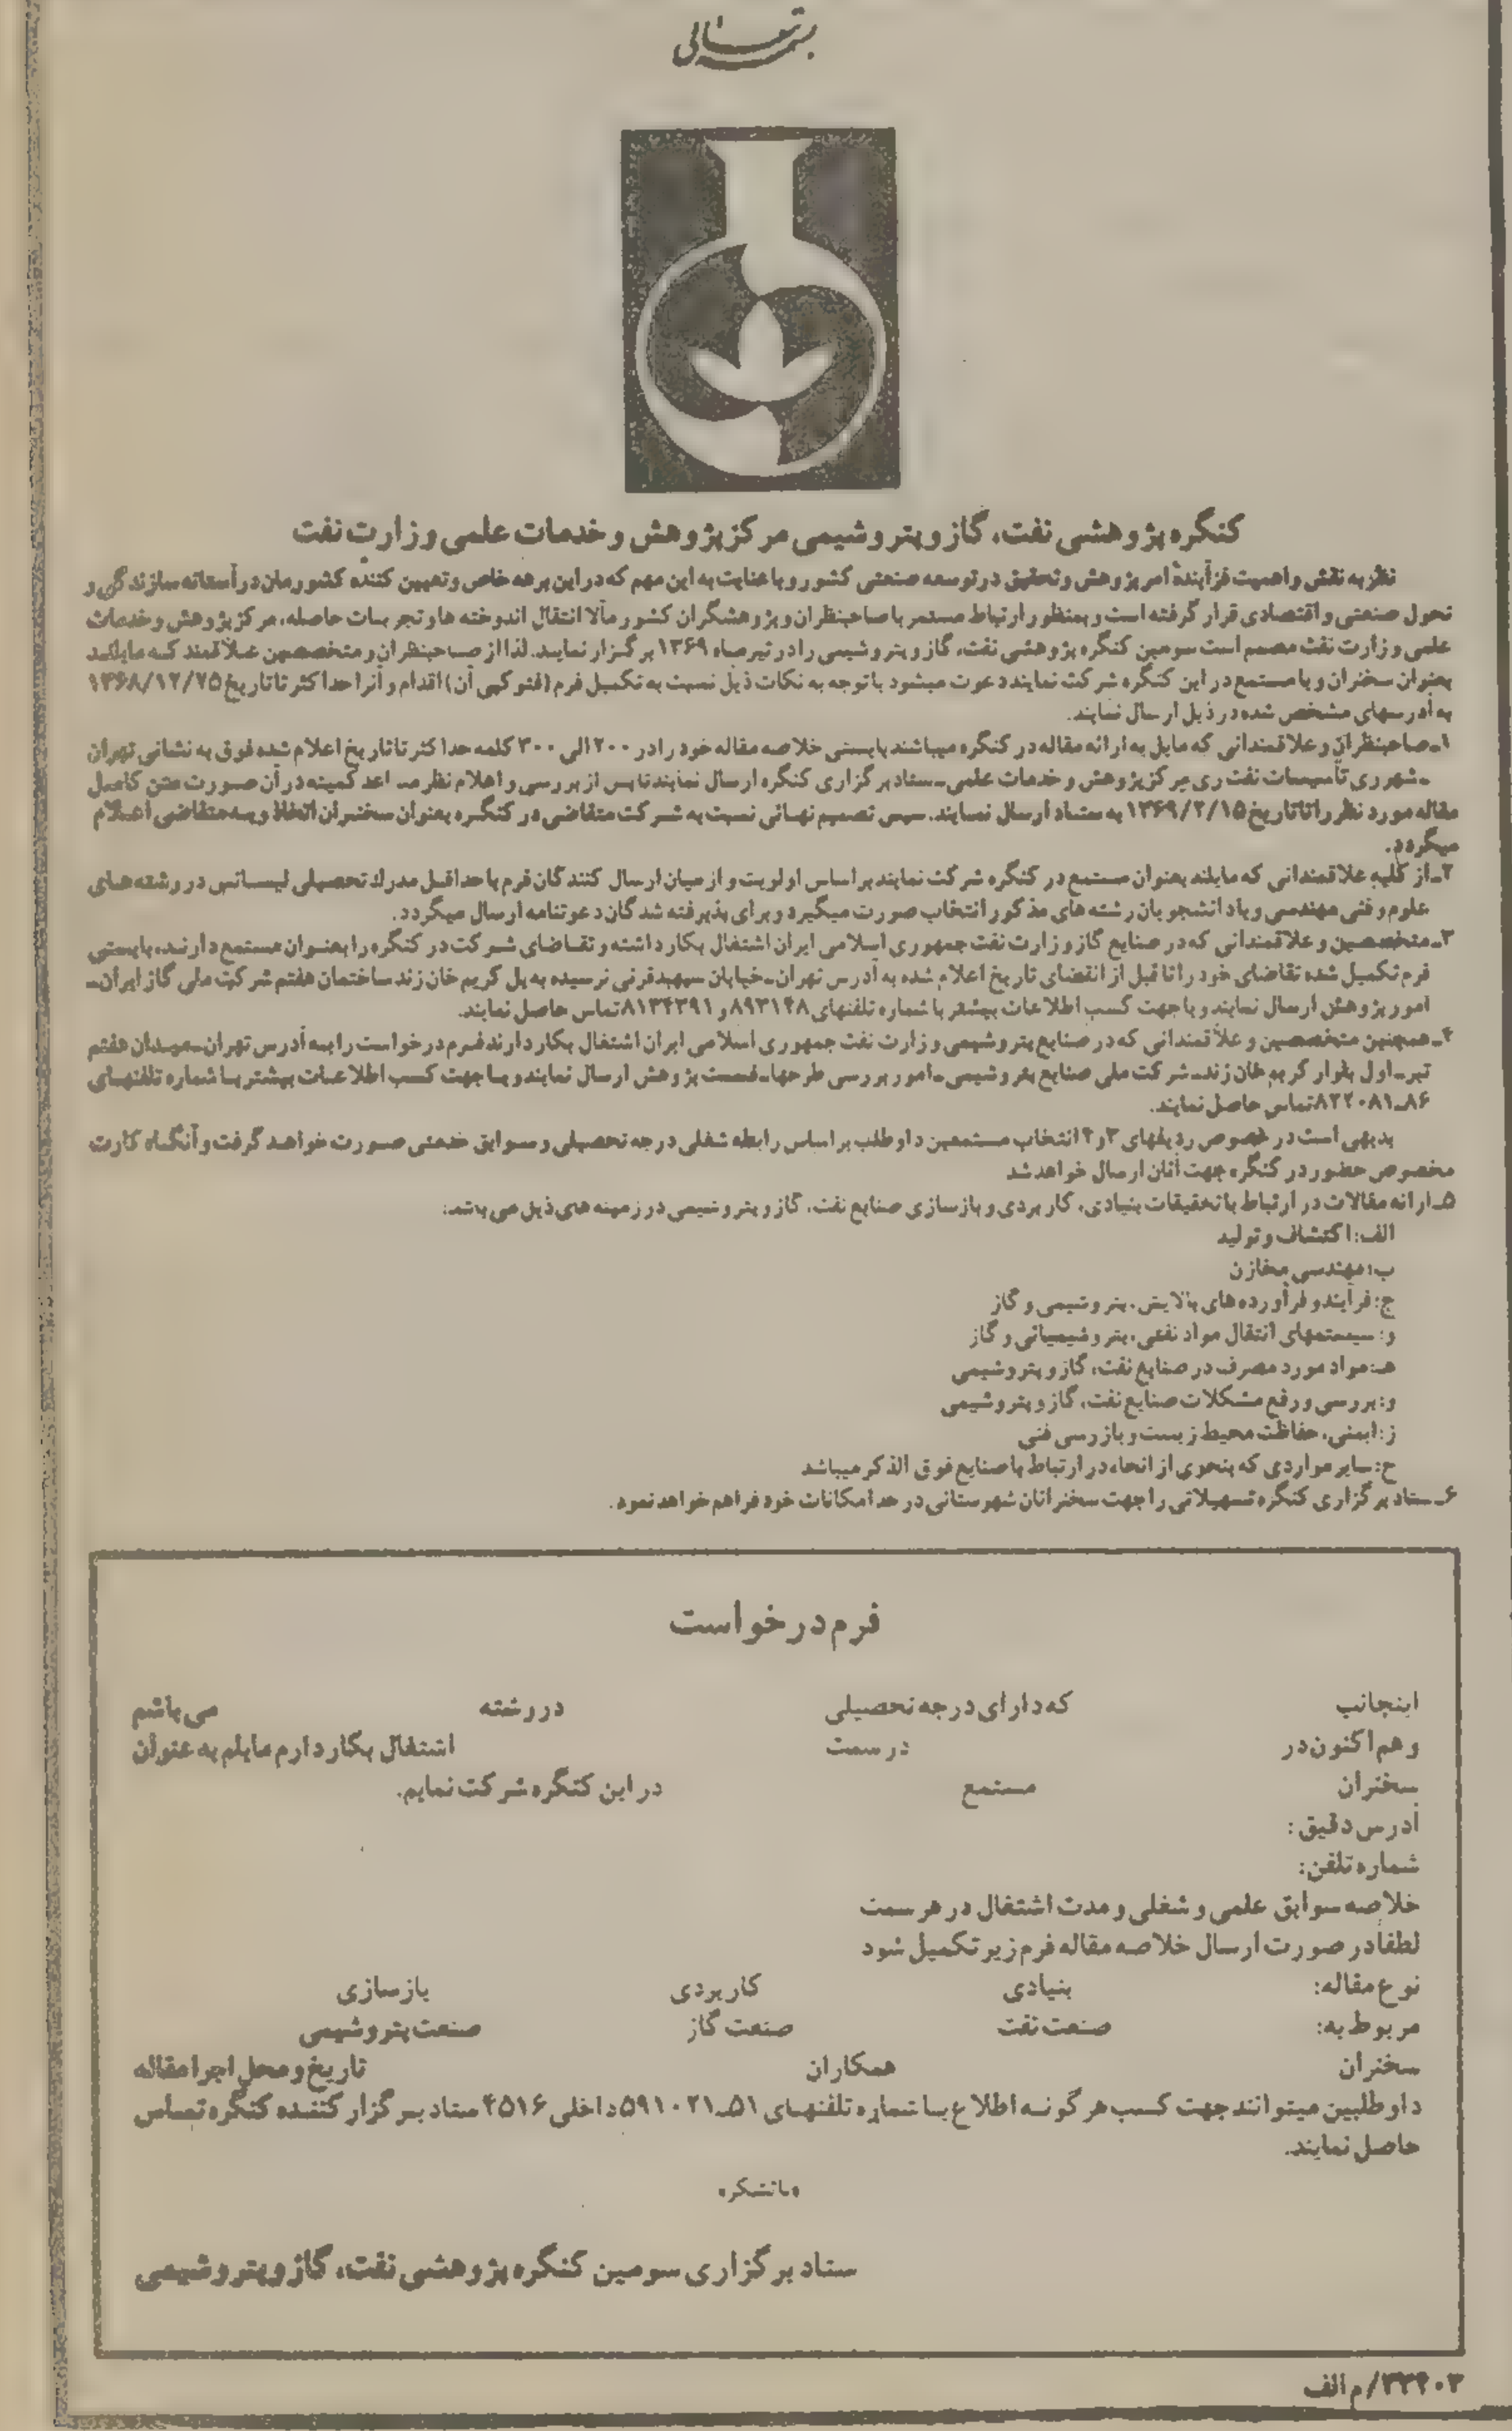 بسمه تعالی
کنگره پژوهشی نفت، گاز و پتروشیمی مرکز پژوهش و خدمات علمی وزارت نفت
نظر به نقش و اهمیت فزآینده امر پژوهش و تحقیق در توسعه صنعتی کشور و با عنایت به این مهم که در این برهه خاص و تعیین کننده کشورمان در آستانه سازندگی و
تحول صنعتی و اقتصادی قرار گرفته است و بمنظور ارتباط مستمر با صاحبنظران و پژوهشگران کشور مآلا انتقال اندوخته ها و تجربیات حاصله، مرکز پژوهش و خدمات
علمی وزارت نفت مصمم است سومین کنگره پژوهشی نفت، گاز و پتروشیمی را در تیرماه ۱۳۶۹ برگزار نماید. لذا از صاحبنظران و متخصصین علاقمند که مایلند
بعنوان سخنران و یا مستمع در این کنگره شرکت نمایند دعوت میشود با توجه به نکات ذیل نسبت به تکمیل فرم (فتوکپی آن) اقدام و آنرا حداکثر تا تاریخ ۱۳۶۸/۱۲/۲۵
به آدرسهای مشخص شده در ذیل ارسال نمایند.
۱ـ صاحبنظران و علاقمندانی که مایل به ارائه مقاله در کنگره میباشند بایستی خلاصه مقاله خود را در ۲۰۰ الی ۳۰۰ کلمه حداکثر تا تاریخ اعلام شده فوق به نشانی تهران
ـ شهرری تأسیسات نفت ری مرکز پژوهش و خدمات علمی ـ ستاد برگزاری کنگره ارسال نمایند تا پس از بررسی و اعلام نظر مساعد کمیته در آن صورت متن کامل
مقاله مورد نظر را تا تاریخ ۱۳۶۹/۲/۱۵ به ستاد ارسال نمایند. سپس تصمیم نهائی نسبت به شرکت متقاضی در کنگره بعنوان سخنران اتخاذ و به متقاضی اعلام
میگردد.
۲ـ از کلیه علاقمندانی که مایلند بعنوان مستمع در کنگره شرکت نمایند براساس اولویت و از میان ارسال کنندگان فرم با حداقل مدرک تحصیلی لیسانس در رشته های
علوم و فنی مهندسی و یا دانشجویان رشته های مذکور انتخاب صورت میگیرد و برای پذیرفته شدگان دعوتنامه ارسال میگردد.
۳ـ متخصصین و علاقمندانی که در صنایع گاز وزارت نفت جمهوری اسلامی ایران اشتغال بکار داشته و تقاضای شرکت در کنگره را بعنوان مستمع دارند، بایستی
فرم تکمیل شده تقاضای خود را تا قبل از انقضای تاریخ اعلام شده به آدرس تهران ـ خیابان سپهبد قرنی نرسیده به پل کریم خان زند ساختمان هفتم شرکت ملی گاز ایران ـ
امور پژوهش ارسال نمایند و یا جهت کسب اطلاعات بیشتر با شماره تلفنهای ۸۹۳۱۴۸ و ۸۱۳۴۳۹۱ تماس حاصل نمایند.
۴ـ همچنین متخصصین و علاقمندانی که در صنایع پتروشیمی وزارت نفت جمهوری اسلامی ایران اشتغال بکار دارند فرم درخواست را به آدرس تهران ـ میدان هفتم
تیر ـ اول بلوار کریم خان زند ـ شرکت ملی صنایع پتروشیمی ـ امور بررسی طرحها ـ قسمت پژوهش ارسال نمایند و یا جهت کسب اطلاعات بیشتر با شماره تلفنهای
۸۶ـ۸۲۲۰۸۱ تماس حاصل نمایند.
بدیهی است در خصوص ردیفهای ۳ و ۴ انتخاب مستمعین داوطلب براساس رابطه شغلی درجه تحصیلی و سوابق خدمتی صورت خواهد گرفت و آنگاه کارت
مخصوص حضور در کنگره جهت آنان ارسال خواهد شد
۵ـ ارائه مقالات در ارتباط با تحقیقات بنیادی، کاربردی و بازسازی صنایع نفت، گاز و پتروشیمی در زمینه های ذیل می باشد:
الف: اکتشاف و تولید
ب: مهندسی مخازن
ج: فرآیند و فرآورده های پالایش، پتروشیمی و گاز
و: سیستمهای انتقال مواد نفتی، پتروشیمیائی و گاز
هـ: مواد مورد مصرف در صنایع نفت، گاز و پتروشیمی
و: بررسی و رفع مشکلات صنایع نفت، گاز و پتروشیمی
ز: ایمنی، حفاظت محیط زیست و بازرسی فنی
ح: سایر مواردی که بنحوی از انحاء در ارتباط با صنایع فوق الذکر میباشد
۶ـ ستاد برگزاری کنگره تسهیلاتی را جهت سخنرانان شهرستانی در حد امکانات خود فراهم خواهد نمود.
فرم درخواست
اینجانب که دارای درجه تحصیلی در رشته می باشم
و هم اکنون در در سمت اشتغال بکار دارم مایلم به عنوان
سخنران مستمع در این کنگره شرکت نمایم.
آدرس دقیق:
شماره تلفن:
خلاصه سوابق علمی و شغلی و مدت اشتغال در هر سمت
لطفاً در صورت ارسال خلاصه مقاله فرم زیر تکمیل شود
نوع مقاله: بنیادی کاربردی بازسازی
مربوط به: صنعت نفت صنعت گاز صنعت پتروشیمی
سخنران همکاران تاریخ و محل اجرا مقاله
داوطلبین میتوانند جهت کسب هرگونه اطلاع با شماره تلفنهای ۵۱ـ۵۹۱۰۲۱ داخلی ۴۵۱۶ ستاد برگزار کننده کنگره تماس
حاصل نمایند.
«باتشکر»
ستاد برگزاری سومین کنگره پژوهشی نفت، گاز و پتروشیمی
۳۳۴۰۳/م الف